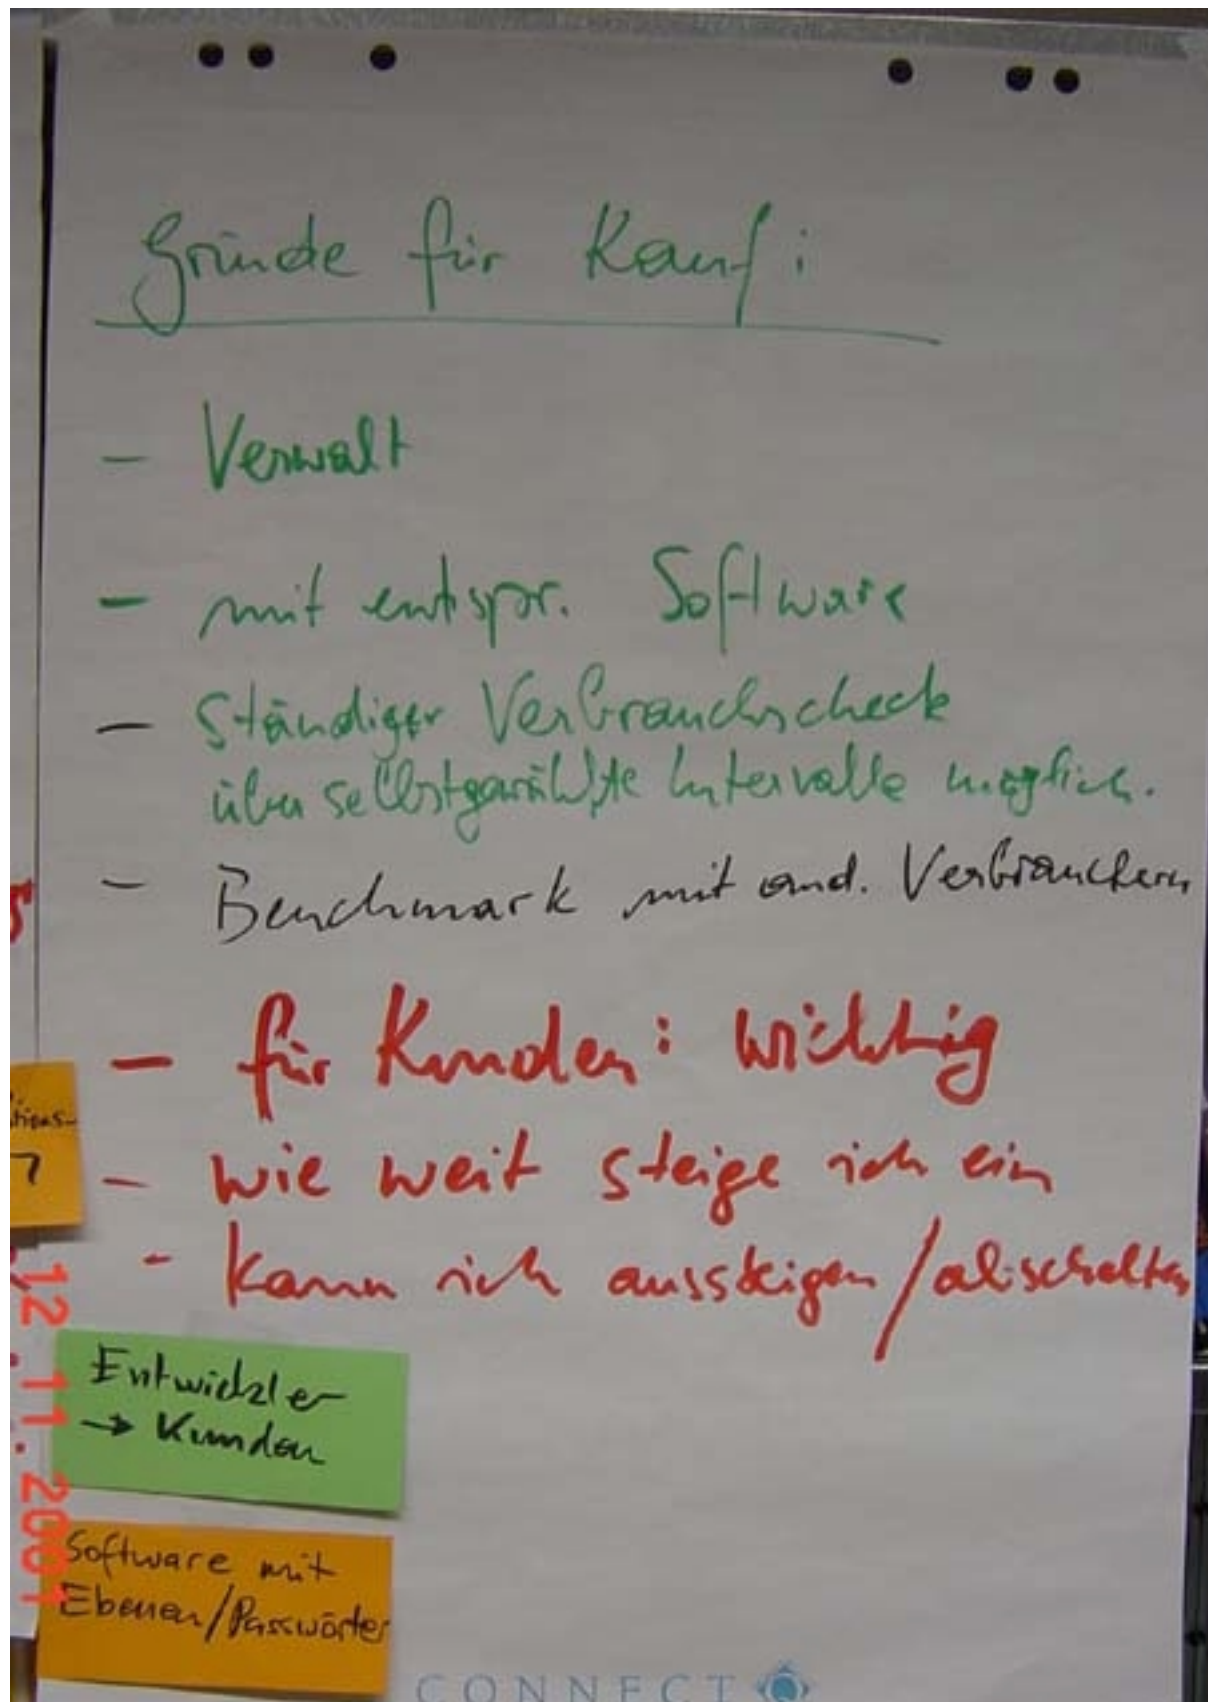 Gründe für Kauf:
- Verwalt
- mit entspr. Software
- ständiger Verbrauchscheck
über selbstgewählte Intervalle möglich.
- Benchmark mit and. Verbrauchern
- für Kunden: wichtig
- wie weit steige ich ein
- kann ich aussteigen/abschalten
Entwickler
→ Kunden
Software mit
Ebenen/Passwörter
CONNECT
12.11.2001